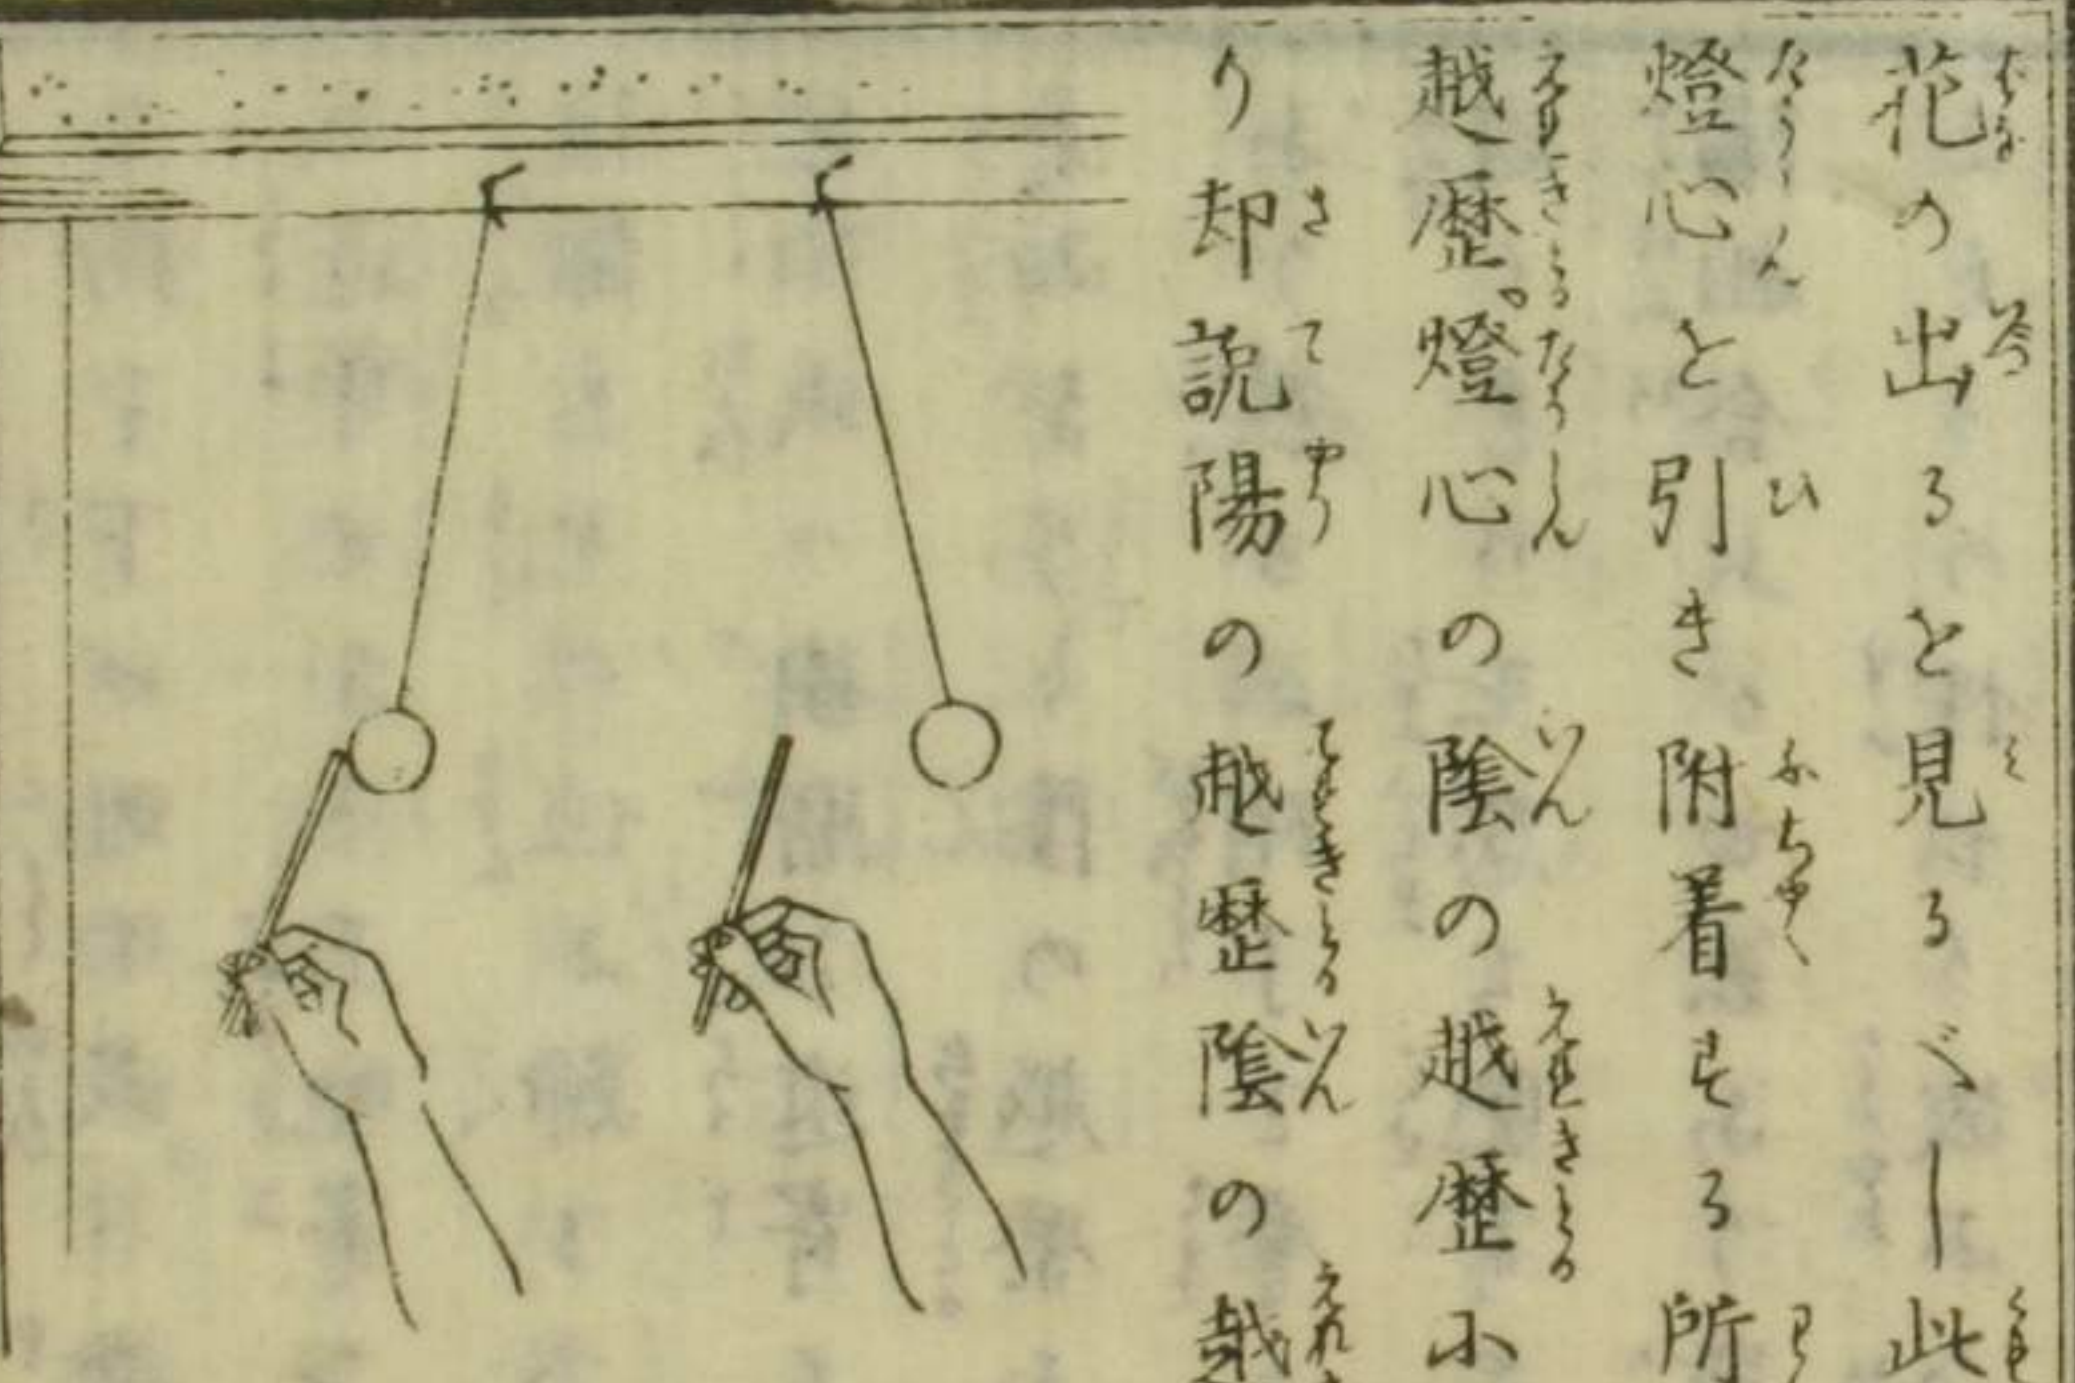 花の出るを見るべし此
燈心と引き附着する所
越歴。燈心の陰の越歴小
り却説陽の越歴陰の越